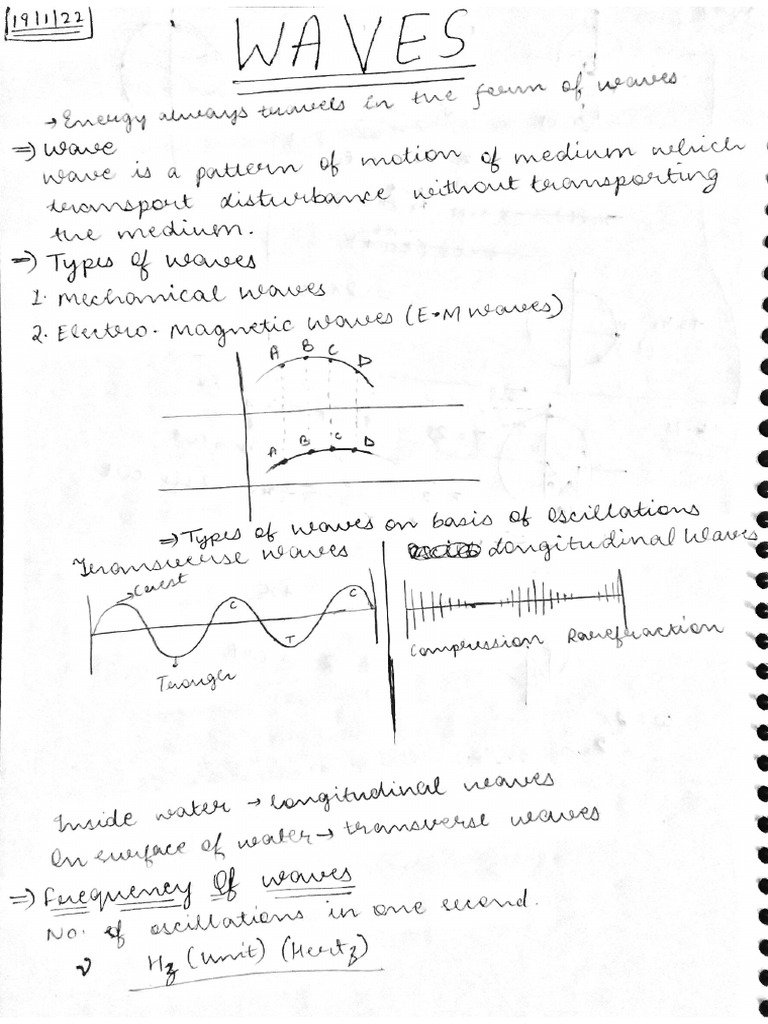 19/1/22
WAVES
→ Energy always travels in the form of waves
⇒ Wave
Wave is a pattern of motion of medium which
transport disturbance without transporting
the medium.
⇒ Types of waves
1. Mechanical waves
2. Electro. Magnetic waves (E.M waves)
A B C D
A B C D
⇒ Types of waves on basis of oscillations
Transverse waves
Longitudinal Waves
→ Crest
C C
T
Trough
Compression Rarefraction
Inside water → longitudinal waves
On surface of water → transverse waves
⇒ Frequency Of waves
No. of oscillations in one second.
ν Hz (Unit) (Hertz)